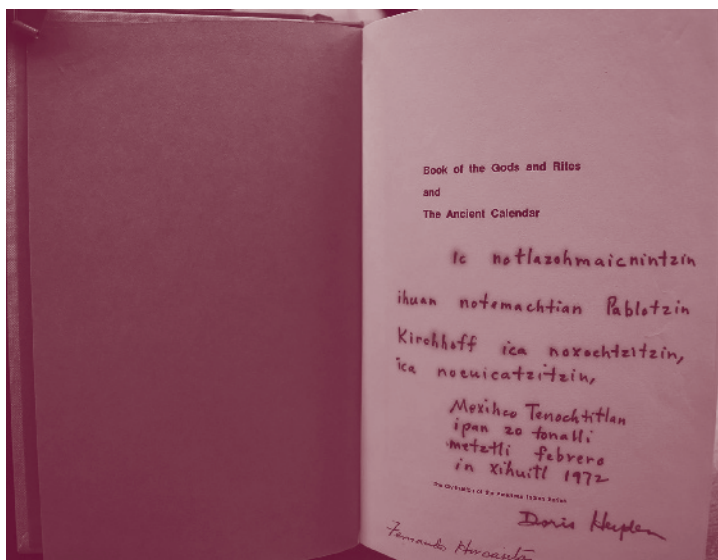 Book of the Gods and Rites
and
The Ancient Calendar
Ic notlazohmaicnintzin
ihuan notemachtian Pablotzin
Kirchhoff ica noxochtzitzin,
ica nocuicatzitzin,
Mexihco Tenochtitlan
ipan 20 tonalli
metztli febrero
in xihuitl 1972
The Civilization of the American Indian Series
Doris Heyden
Fernando Horcasitas